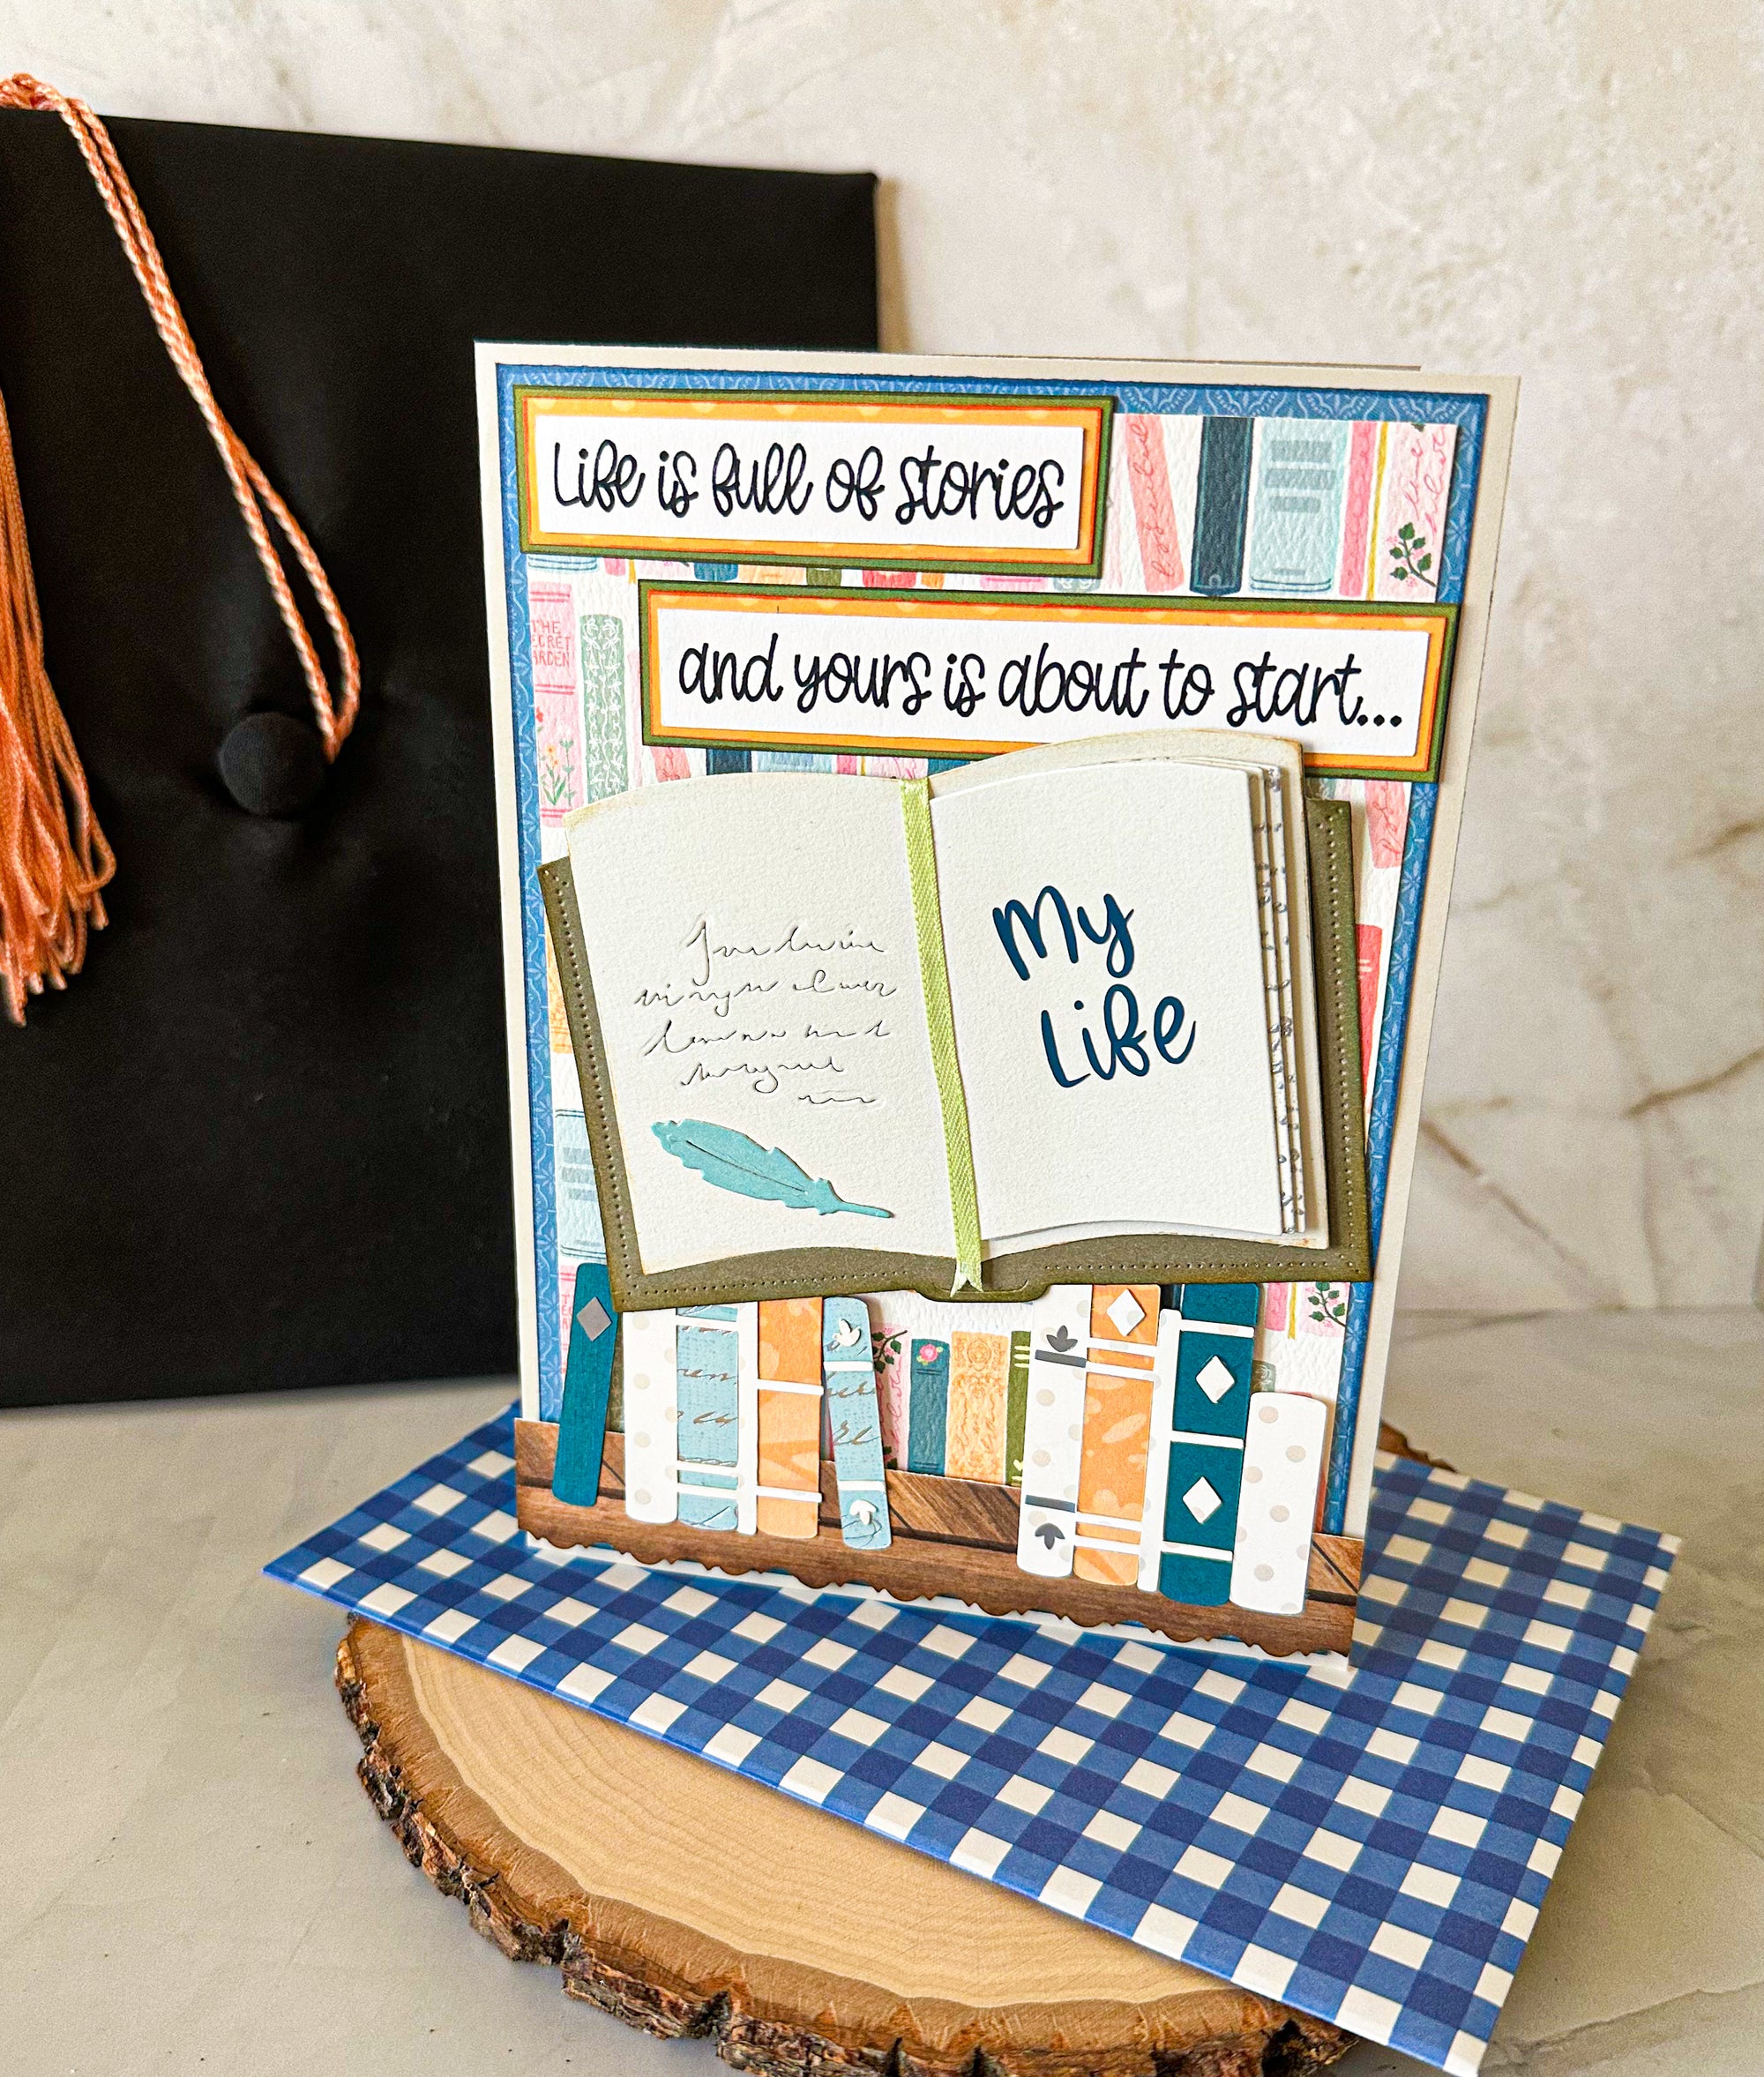 Life is full of stories
and yours is about to start...
THE
ECRET
ARDEN
My
Life